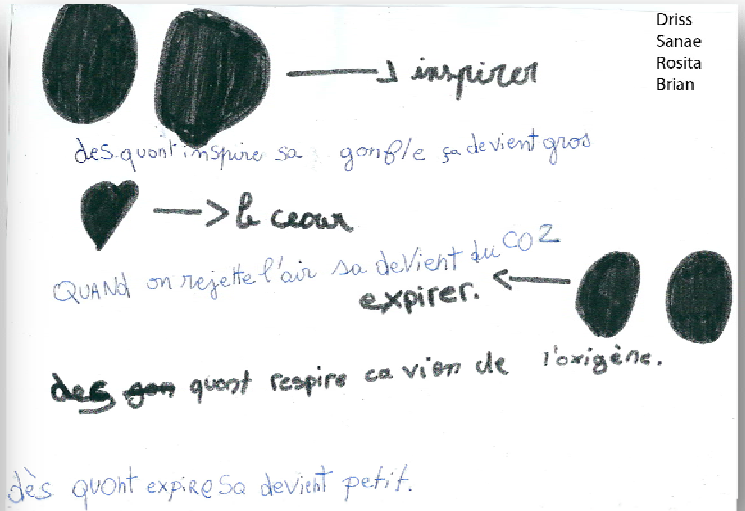 Driss
Sanae
Rosita
Brian
inspirer
des quont inspire sa gonfle ça devient gros
le ceour
QUAND on rejette l'air sa devient du CO2
expirer.
des gon quont respire ca vien de l'origène.
dès quont expire sa devient petit.